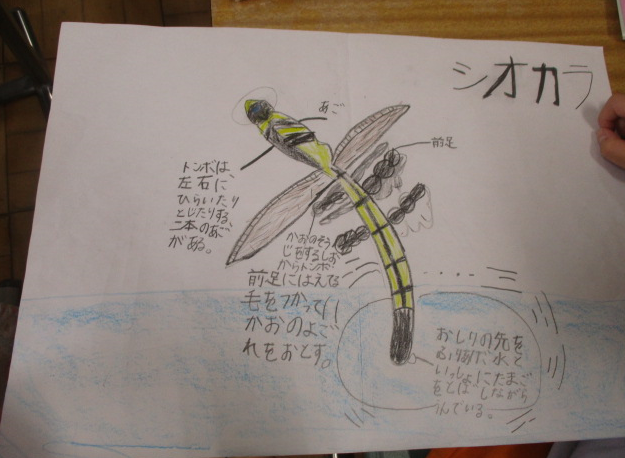 シオカラ
あご
前足
トンボは、
左右に
ひらいたり
とじたりする、
二本のあご
がある。
かおのそう
じをするしお
からトンボ
前足にはえてる
毛をつかって
かおのよご
れをおとす。
おしりの先を
水と
いっしょにたまご
をとばしながら
うんでいる。